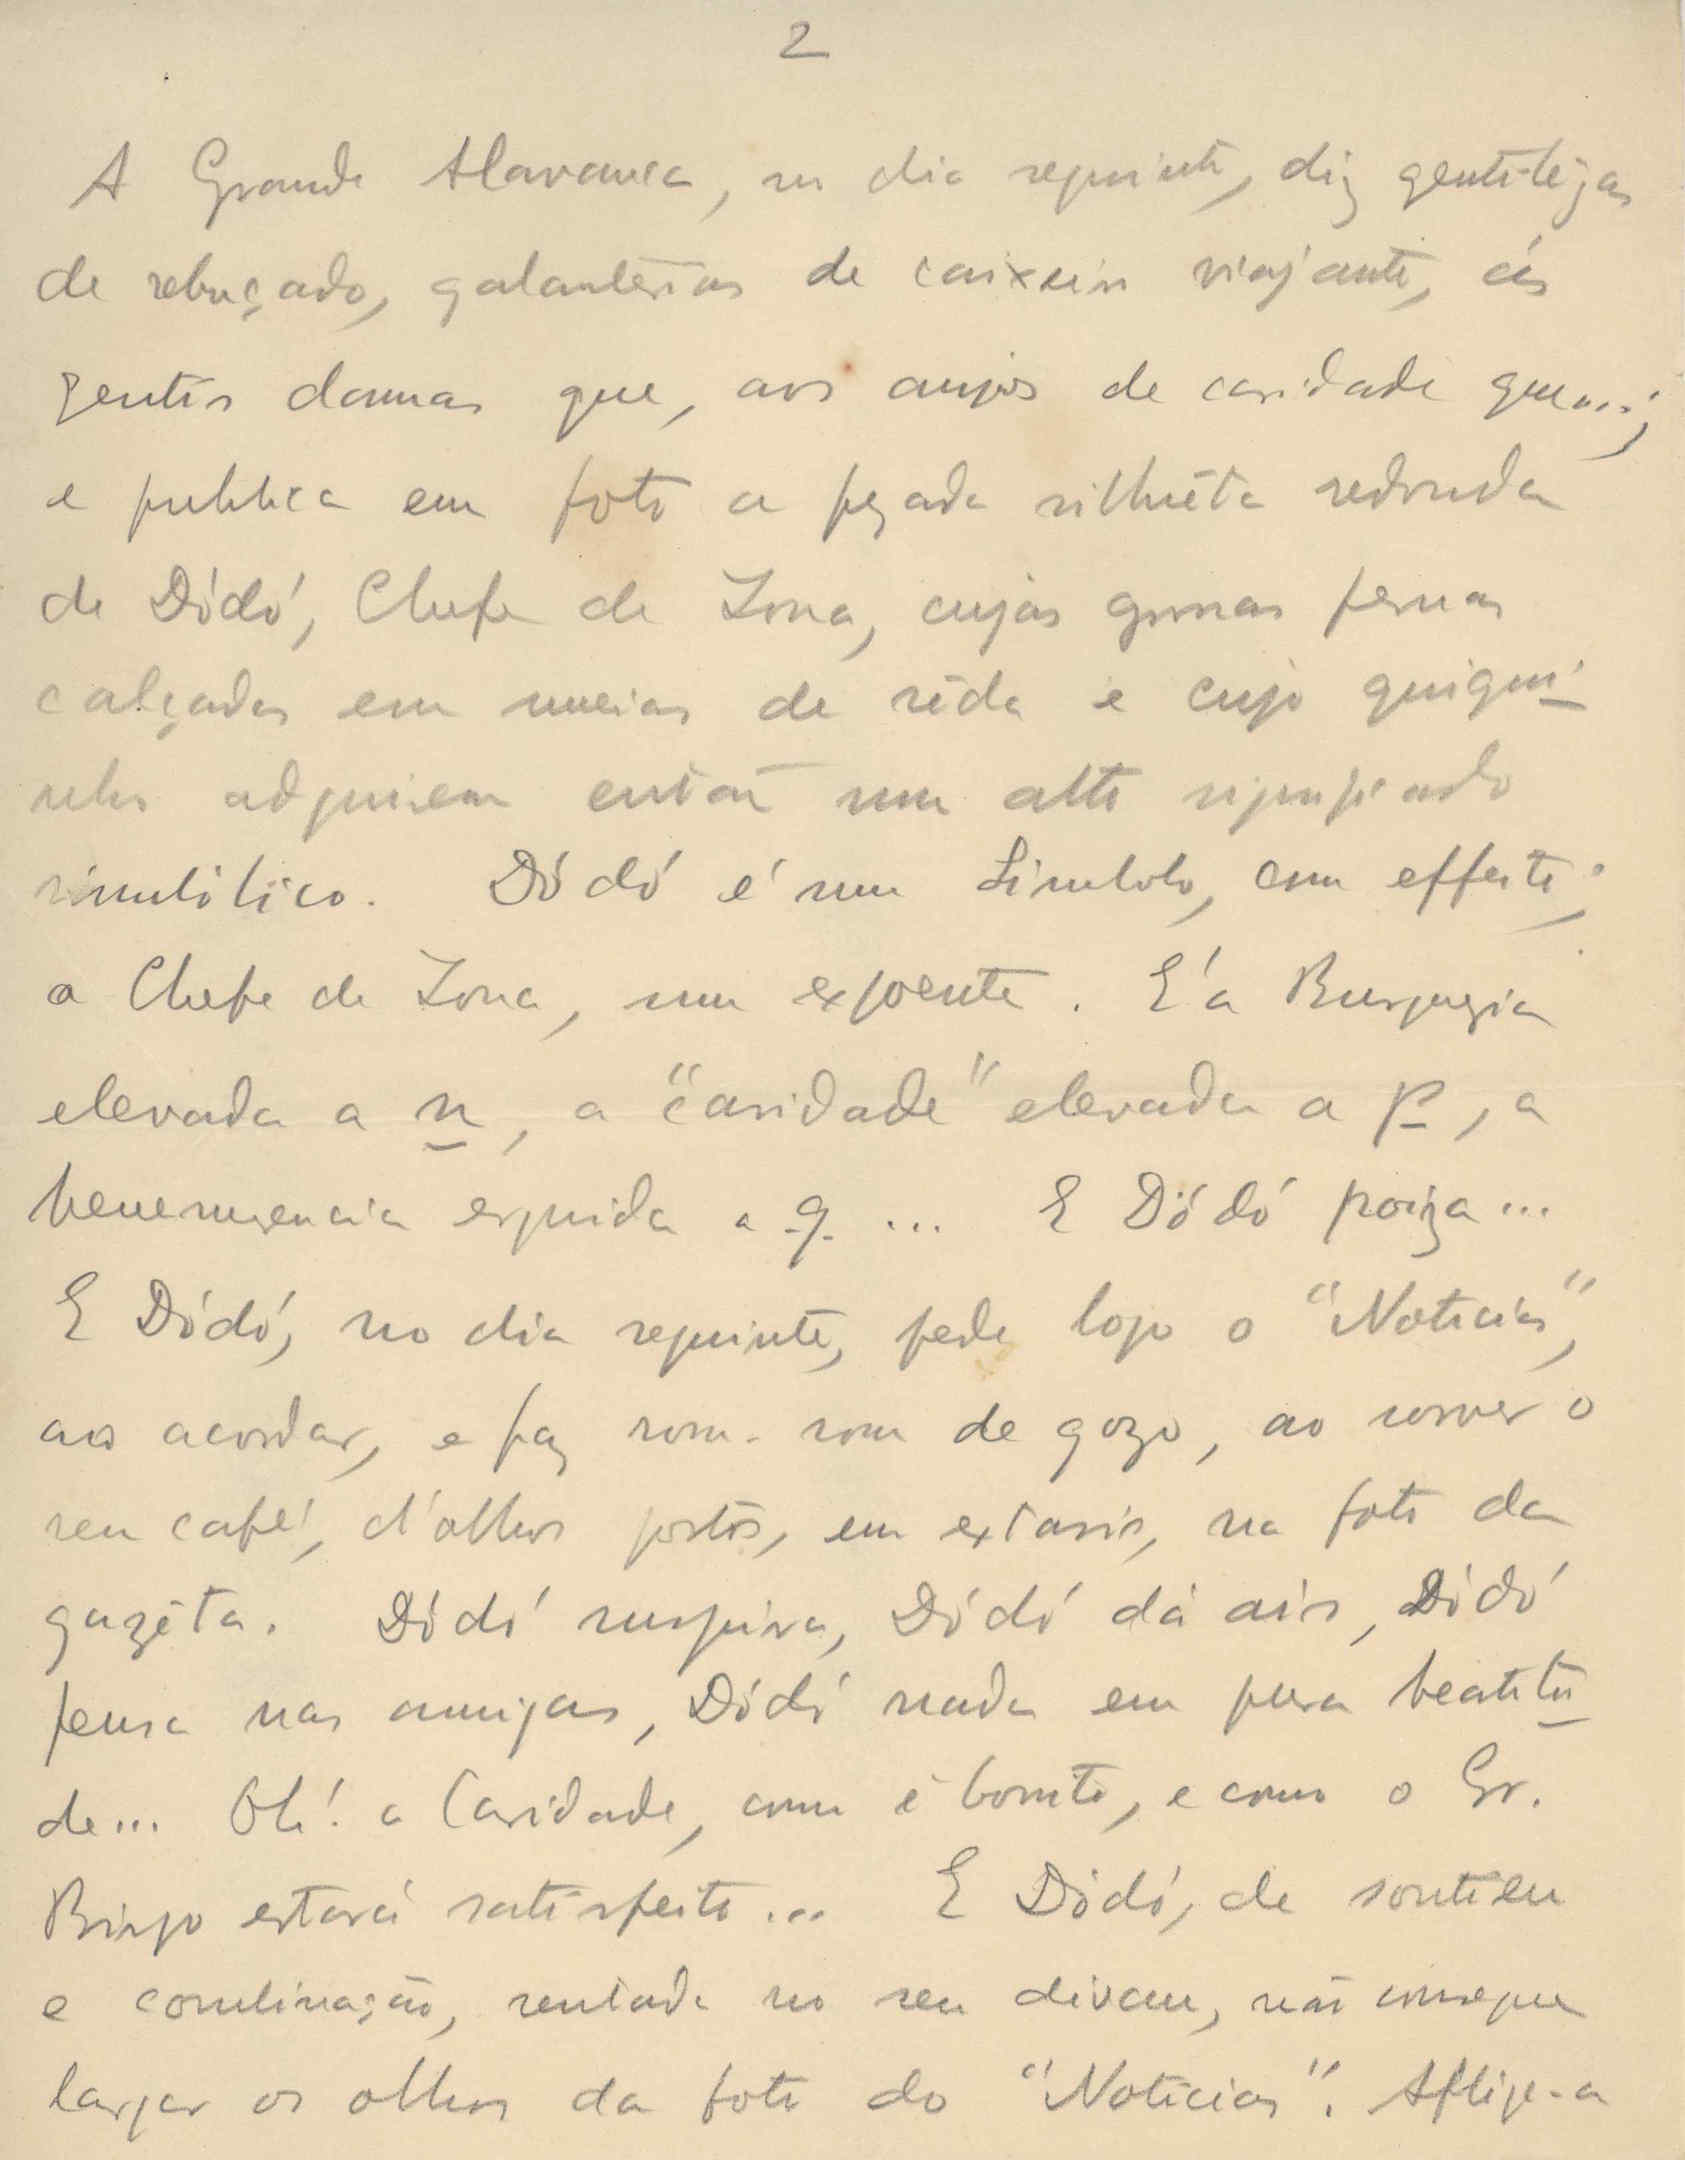 2
A Grande Alavanca, no dia seguinte, diz gentilezas
de rebuçado, galanterias de caixeiro viajante, ás
gentis damas que, aos anjos de caridade que...;
e publica em foto a pezada silhuêta redonda
de Dódó, Chefe de Zona, cujas grossas pernas
calçadas em meias de sêda e cujo
adquirem então um alto significado
simbólico. Dódó é um Simbolo, com effeito;
a Chefe de Zona, um expoente. E' a Burguezia
elevada a n, a "caridade" elevada a p, a
benemerencia erguida a q ... E Dódó poiza...
E Dódó, no dia seguinte, pede logo o "Noticias",
ao acordar, e faz rom-rom de gozo, ao sorver o
seu café, d'olhos postos, em extasis, na foto da
gazêta. Dódó suspira, Dódó dá ais, Dódó
pensa nas amigas, Dódó nada em pura beatitu
de... Oh! a Caridade, como é bonito, e como o Sr.
Bispo estará satisfeito... E Dódó, de soutien
e combinação, sentada no seu divan, não consegue
largar os olhos da foto do "Noticias". Aflige-a